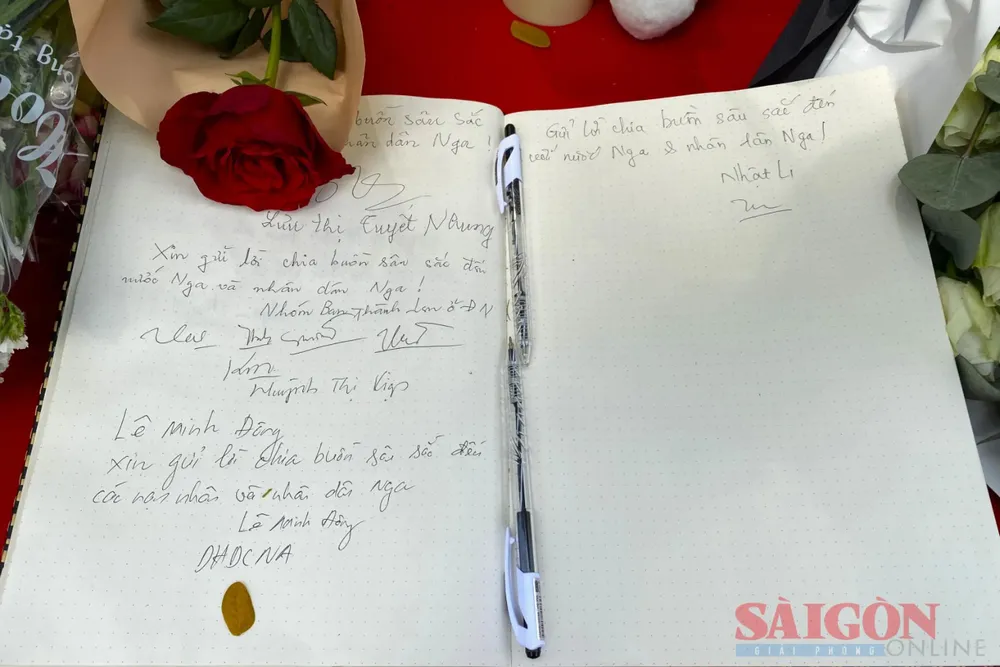 buồn sâu sắc
nhân dân Nga !
Lưu Thị Tuyết Nhung
Xin gửi lời chia buồn sâu sắc đến
nước Nga và nhân dân Nga !
Nhóm Bạn Thành Lan ở ĐN
Huỳnh Thị
Lê Minh Đông
Xin gửi lời chia buồn sâu sắc đến
các nạn nhân và nhân dân Nga
Lê Minh Đông
DHDCNA
Gửi lời chia buồn sâu sắc đến
nước Nga & nhân dân Nga !
Nhật Li
SÀI GÒN
GIẢI PHÓNG ONLINE